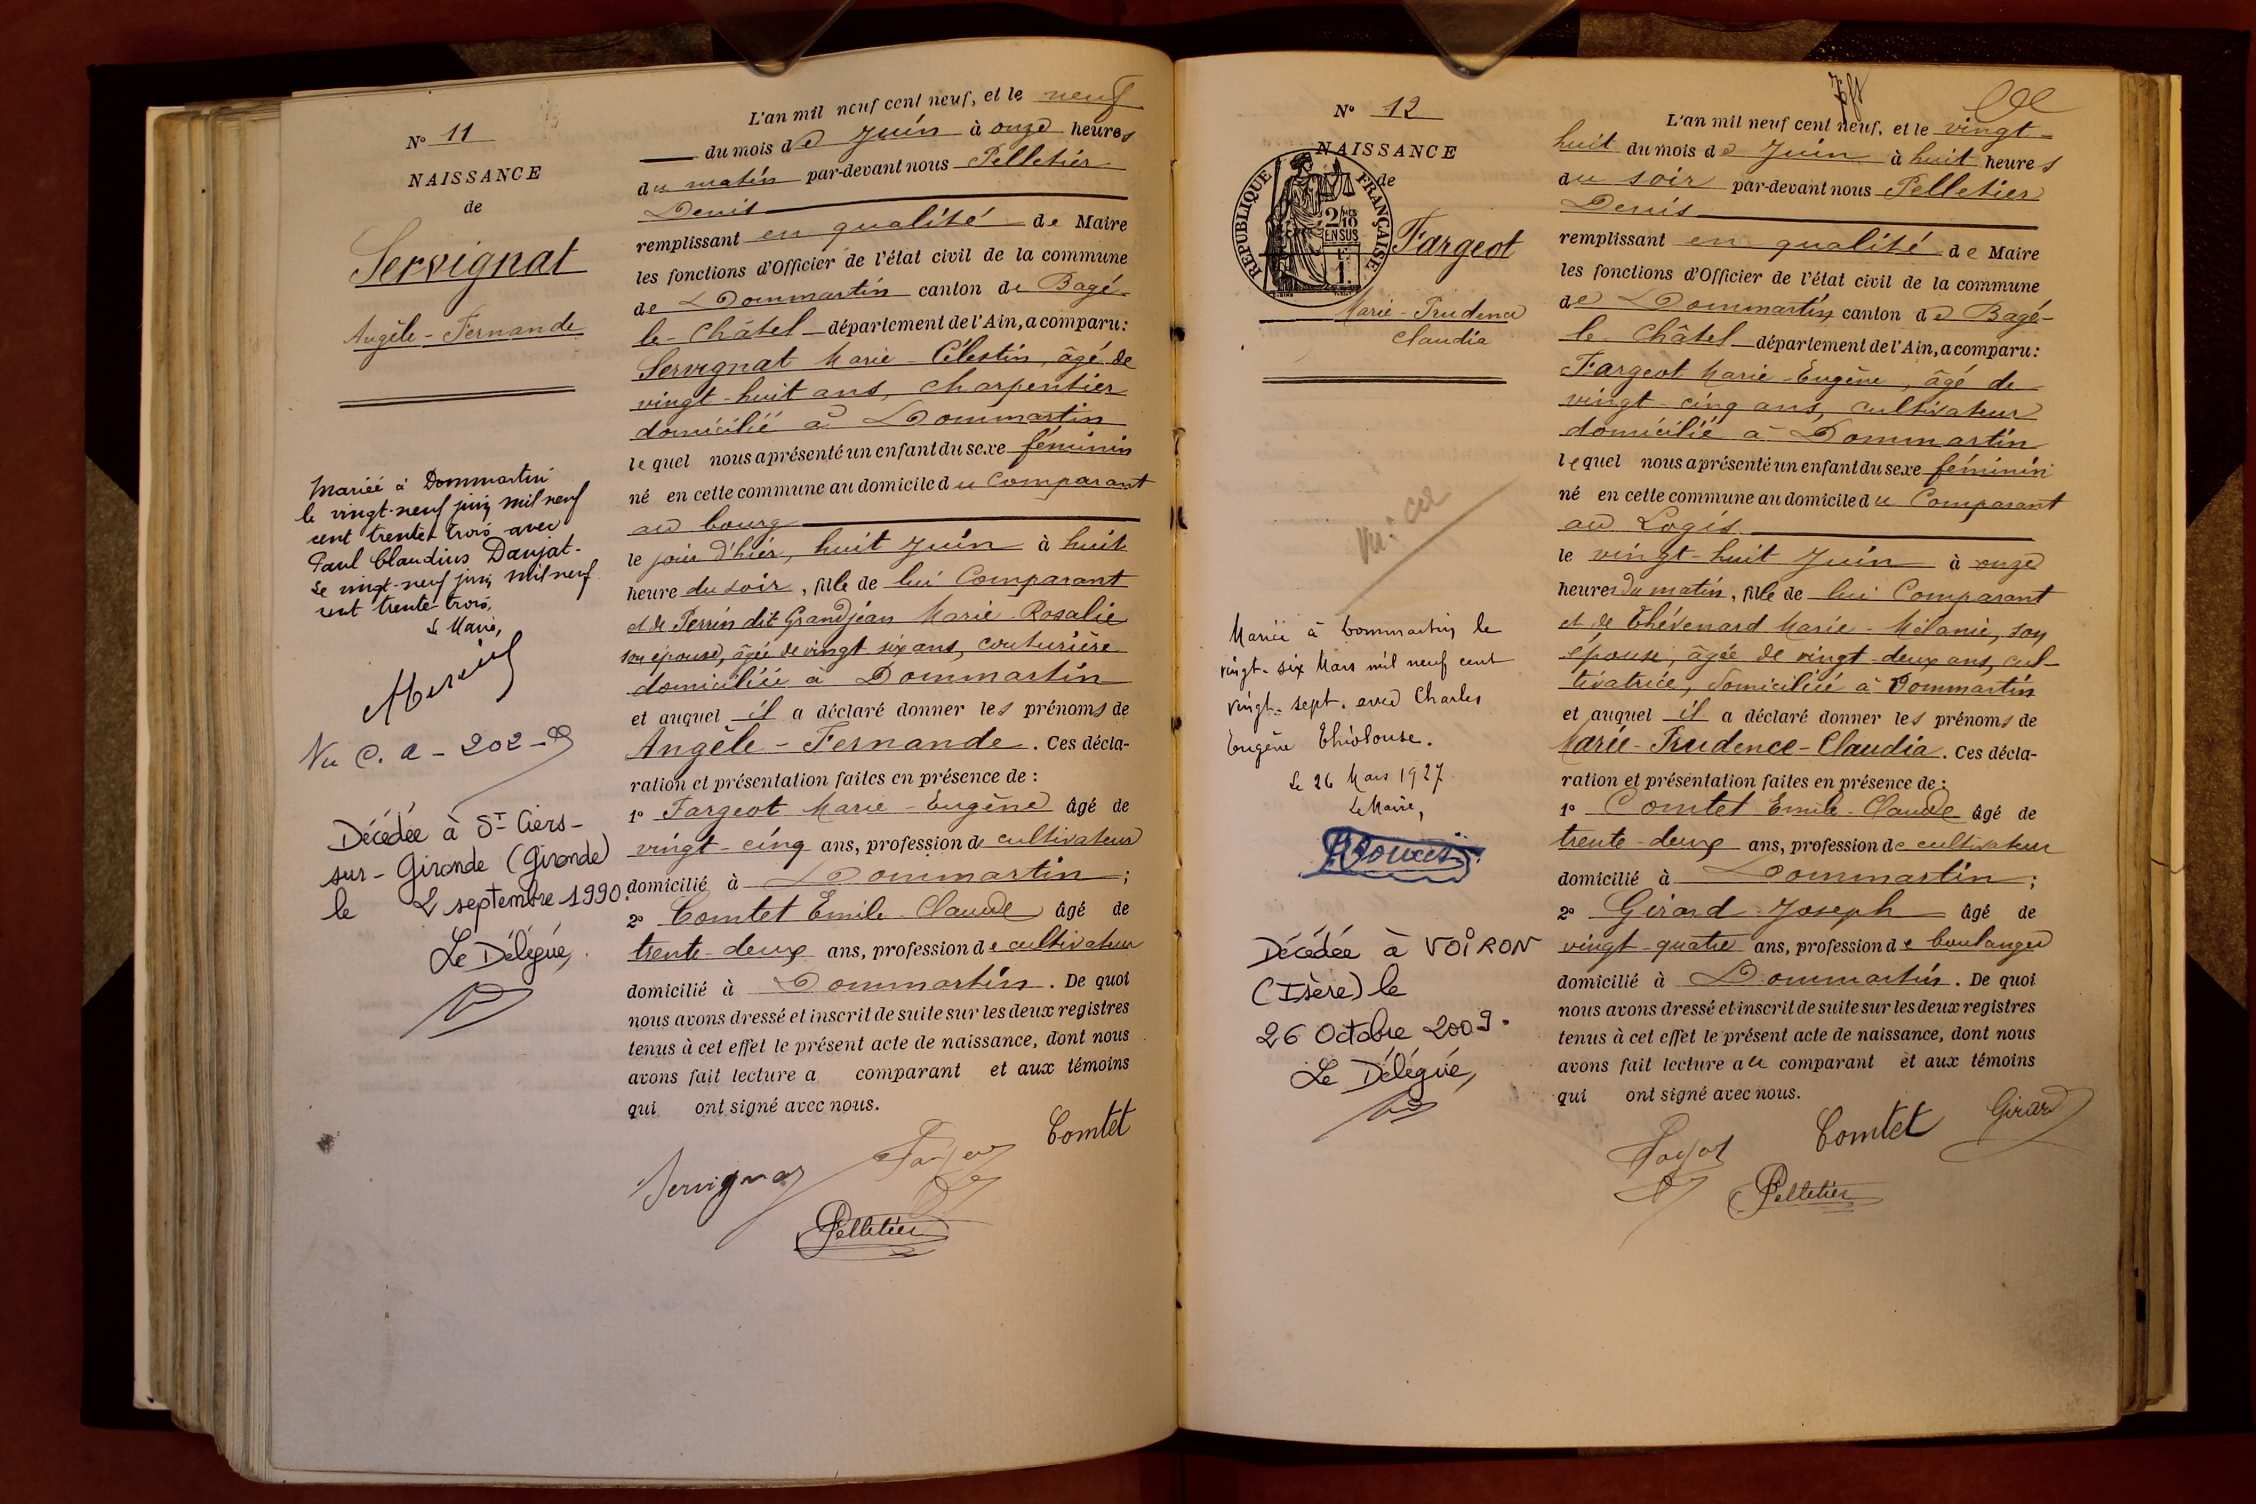 N° 11
NAISSANCE
de
Servignat
Angèle - Fernande
Mariée à Dommartin
le vingt-neuf juin mil neuf
cent trente trois avec
Paul Claudius Daujat -
Le vingt-neuf juin mil neuf
cent trente trois,
Le Maire,
Vu C. a - 202 -
Décédée à St Ciers-
sur-Gironde (Gironde)
le 2 septembre 1990.
Le Délégué,
L'an mil neuf cent neuf, et le neuf
du mois de Juin à onze heures
du matin par-devant nous Pelletier
Denis
remplissant en qualité de Maire
les fonctions d'Officier de l'état civil de la commune
de Dommartin canton de Bagé-
le-Châtel département de l'Ain, a comparu:
Servignat Marie - Célestin, âgé de
vingt-huit ans, charpentier
domicilié à Dommartin
lequel nous a présenté un enfant du sexe féminin
né en cette commune au domicile du Comparant
au bourg
le jour d'hier, huit Juin à huit
heure du soir, fille de lui Comparant
et de Perrin dit Grandjean Marie-Rosalie
son épouse, âgée de vingt six ans, couturière
domiciliée à Dommartin
et auquel il a déclaré donner les prénoms de
Angèle - Fernande. Ces décla-
ration et présentation faites en présence de :
1° Fargeot Marie - Eugène âgé de
vingt-cinq ans, profession de cultivateur
domicilié à Dommartin ;
2° Comtet Emile Claude âgé de
trente-deux ans, profession de cultivateur
domicilié à Dommartin. De quoi
nous avons dressé et inscrit de suite sur les deux registres
tenus à cet effet le présent acte de naissance, dont nous
avons fait lecture a comparant et aux témoins
qui ont signé avec nous.
Servignat
Comtet
Pelletier
N° 12
NAISSANCE
de
RÉPUBLIQUE FRANÇAISE
2/10
EN SUS
Fargeot
Marie - Prudence
Claudia
Mariée à Dommartin le
vingt-six Mars mil neuf cent
vingt-sept. avec Charles
Eugène Thiolouse.
Le 26 Mars 1927.
Le Maire,
Décédée à VOIRON
(Isère) le
26 Octobre 2009.
Le Délégué,
L'an mil neuf cent neuf, et le vingt-
huit du mois de Juin à huit heures
du soir par-devant nous Pelletier
Denis
remplissant en qualité de Maire
les fonctions d'Officier de l'état civil de la commune
de Dommartin canton de Bagé-
le Châtel département de l'Ain, a comparu:
Fargeot Marie-Eugène, âgé de
vingt-cinq ans, cultivateur
domicilié à Dommartin
lequel nous a présenté un enfant du sexe féminin
né en cette commune au domicile du Comparant
au Logis
le vingt-huit Juin à onze
heures du matin, fille de lui Comparant
et de Thévenard Marie-Mélanie, son
épouse, âgée de vingt-deux ans, cul-
tivatrice, domiciliée à Dommartin
et auquel il a déclaré donner les prénoms de
Marie-Prudence-Claudia. Ces décla-
ration et présentation faites en présence de :
1° Comtet Emile-Claude âgé de
trente-deux ans, profession de cultivateur
domicilié à Dommartin ;
2° Girard Joseph âgé de
vingt-quatre ans, profession de boulanger
domicilié à Dommartin. De quoi
nous avons dressé et inscrit de suite sur les deux registres
tenus à cet effet le présent acte de naissance, dont nous
avons fait lecture au comparant et aux témoins
qui ont signé avec nous.
Comtet
Girard
Pelletier